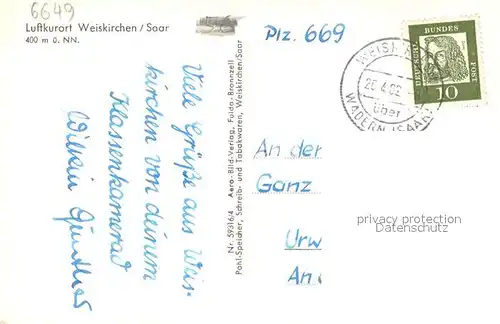 6649
Luftkurort Weiskirchen / Saar
400 m ü. NN.
Viele Grüße aus Weis-
kirchen von deinem
Klassenkamerad
Günther
Nr. 59316/4 Aero-Bild-Verlag, Fulda-Bronnzell
Pohl-Speicher, Schreib- und Tabakwaren, Weiskirchen/Saar
Plz. 669
über
WADERN (SAAR)
DEUTSCHE
BUNDES
POST
10
An der
Ganz
Urw
An
privacy protection
Datenschutz